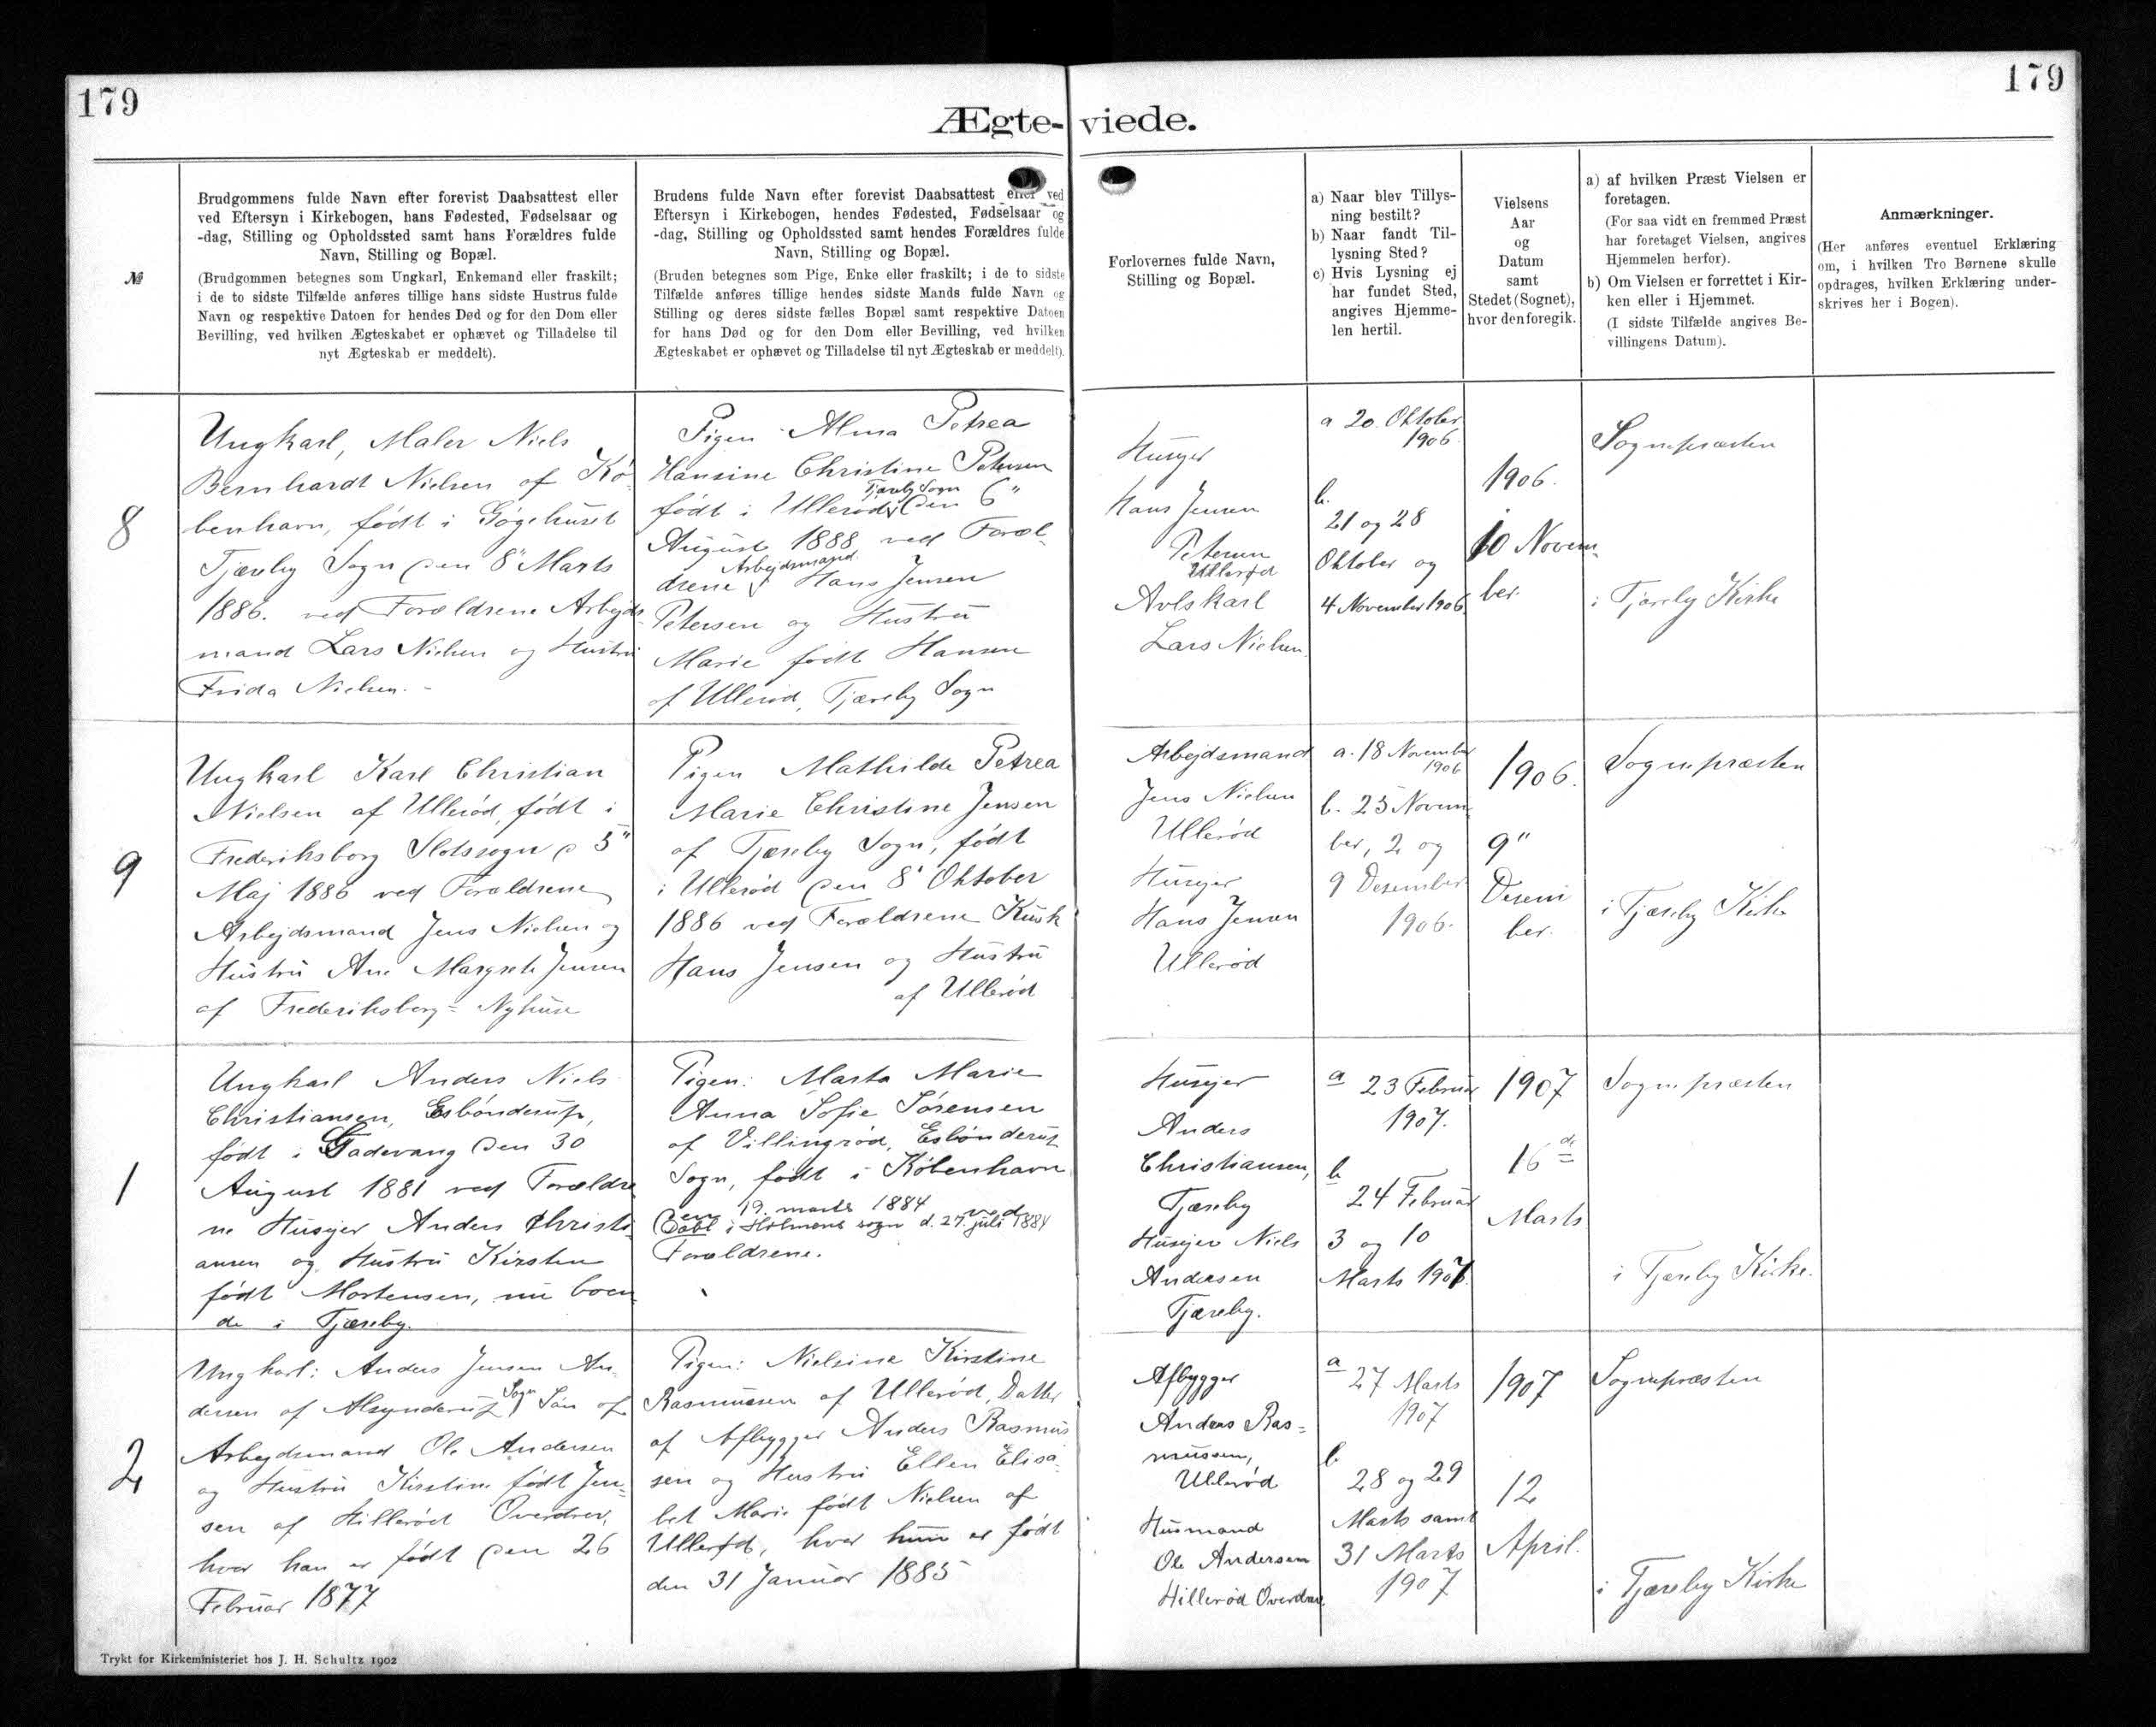 179
179
Ægte-viede.
№
Brudgommens fulde Navn efter forevist Daabsattest eller
ved Eftersyn i Kirkebogen, hans Fødested, Fødselsaar og
-dag, Stilling og Opholdssted samt hans Forældres fulde
Navn, Stilling og Bopæl.
(Brudgommen betegnes som Ungkarl, Enkemand eller fraskilt;
i de to sidste Tilfælde anføres tillige hans sidste Hustrus fulde
Navn og respektive Datoen for hendes Død og for den Dom eller
Bevilling, ved hvilken Ægteskabet er ophævet og Tilladelse til
nyt Ægteskab er meddelt).
Brudens fulde Navn efter forevist Daabsattest eller ved
Eftersyn i Kirkebogen, hendes Fødested, Fødselsaar og
-dag, Stilling og Opholdssted samt hendes Forældres fulde
Navn, Stilling og Bopæl.
(Bruden betegnes som Pige, Enke eller fraskilt; i de to sidste
Tilfælde anføres tillige hendes sidste Mands fulde Navn og
Stilling og deres sidste fælles Bopæl samt respektive Datoen
for hans Død og for den Dom eller Bevilling, ved hvilken
Ægteskabet er ophævet og Tilladelse til nyt Ægteskab er meddelt).
Forlovernes fulde Navn,
Stilling og Bopæl.
a) Naar blev Tillys-
ning bestilt?
b) Naar fandt Til-
lysning Sted?
c) Hvis Lysning ej
har fundet Sted,
angives Hjemme-
len hertil.
Vielsens
Aar
og
Datum
samt
Stedet (Sognet),
hvor den foregik.
a) af hvilken Præst Vielsen er
foretagen.
(For saa vidt en fremmed Præst
har foretaget Vielsen, angives
Hjemmelen herfor).
b) Om Vielsen er forrettet i Kir-
ken eller i Hjemmet.
(I sidste Tilfælde angives Be-
villingens Datum).
Anmærkninger.
(Her anføres eventuel Erklæring
om, i hvilken Tro Børnene skulle
opdrages, hvilken Erklæring under-
skrives her i Bogen).
8
Ungkarl, Maler Niels
Bernhardt Nielsen af Kø-
benhavn, født i Gøgehuset
Tjæreby Sogn den 8" Marts
1886. ved Forældrene Arbejds-
mand Lars Nielsen og Hustru
Frida Nielsen. -
Pigen Alma Petrea
Hansine Christine Petersen
Tjæreby Sogn
født i Ullerød den 6"
August 1888 ved Foræl-
Arbejdsmand
drene Hans Jensen
Petersen og Hustru
Marie født Hansen
af Ullerød, Tjæreby Sogn
Husejer
Hans Jensen
Petersen
Ullerød
Avlskarl
Lars Nielsen.
a 20. Oktober
1906.
b.
21 og 28
Oktober og
4 November 1906
1906.
10 Novem-
ber.
Sognepræsten
i Tjæreby Kirke
9
Ungkarl Karl Christian
Nielsen af Ullerød, født i
Frederiksborg Slotssogn d 5"
Maj 1886 ved Forældrene
Arbejdsmand Jens Nielsen og
Hustru Ane Margrete Jensen
af Frederiksborg= Nyhuse
Pigen Mathilde Petrea
Marie Christine Jensen
af Tjæreby Sogn, født
i Ullerød den 8' Oktober
1886 ved Forældrene Kusk
Hans Jensen og Hustru
af Ullerød
Arbejdsmand
Jens Nielsen
Ullerød
Husejer
Hans Jensen
Ullerød
a. 18 November
1906
b. 25 Novem-
ber, 2 og
9 Desember
1906.
1906.
9"
Desem
ber.
Sognepræsten
i Tjæreby Kirke
1
Ungkarl Anders Niels
Christiansen, Esbønderup,
født i Gadevang den 30
August 1881 ved Forældre
ne Husejer Anders Christi-
ansen og Hustru Kirsten
født Mortensen, nu boen-
de i Tjæreby.
Pigen: Marta Marie
Anna Sofie Sørensen
af Villingrød, Esbønderup
Sogn, født i København
den 19. marts 1884 ved
Døbt i Holmens sogn d. 27. juli 1884
Forældrene.
Husejer
Anders
Christiansen,
Tjæreby
Husejer Niels
Andersen
Tjæreby.
a 23 Februar
1907.
b
24 Februar
3 og 10
Marts 1907.
1907
16de
Marts
Sognepræsten
i Tjæreby Kirke.
2
Ungkarl: Anders Jensen An-
dersen af Alsynderup Sogn Søn af
Arbejdsmand Ole Andersen
og Hustru Kirstine født Jen-
sen af Hillerød Overdrev,
hvor han er født den 26
Februar 1877
Pigen: Nielsine Kirstine
Rasmussen af Ullerød, Datter
af Afbygger Anders Rasmus
sen og Hustru Ellen Elisa-
bet Marie født Nielsen af
Ullerød, hvor hun er født
den 31 Januar 1885
Afbygger
Anders Ras=
mussen,
Ullerød
Husmand
Ole Andersen
Hillerød Overdrev.
a 27 Marts
1907
b
28 og 29
Marts samt
31 Marts
1907
1907
12
April.
Sognepræsten
i Tjæreby Kirke
Trykt for Kirkeministeriet hos J. H. Schultz 1902